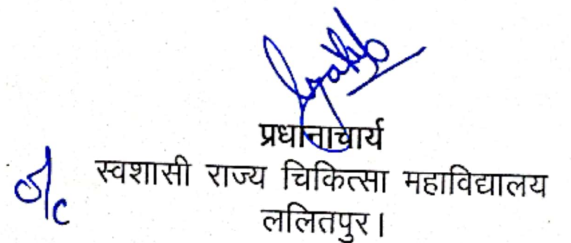 प्रधानाचार्य
स्वशासी राज्य चिकित्सा महाविद्यालय
ललितपुर।